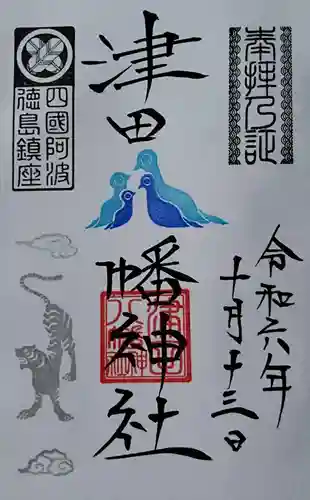 奉拝乃証
津田
八幡神社
令和六年
十月十三日
四國阿波
徳島鎮座